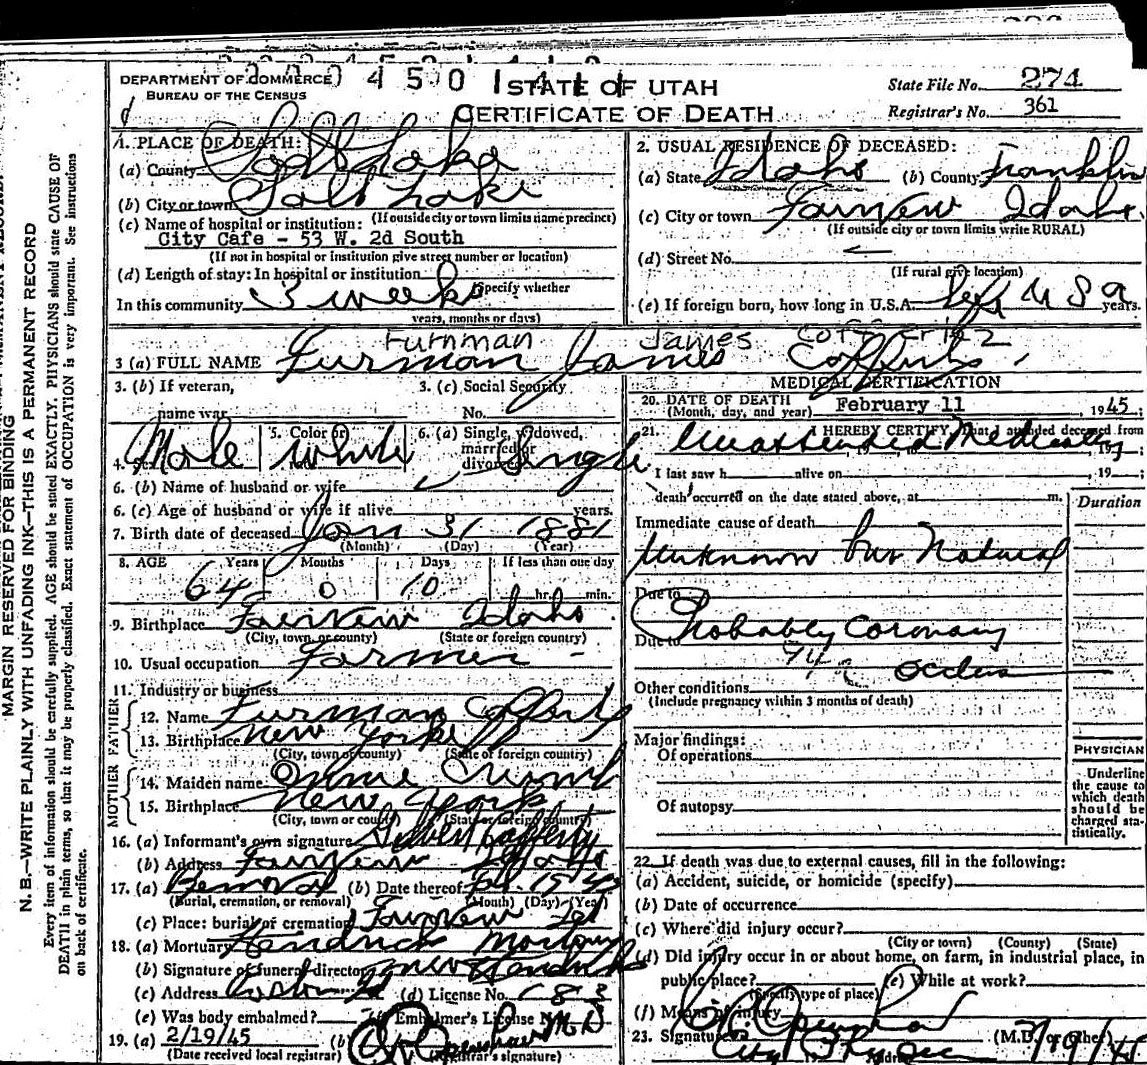 DEPARTMENT OF COMMERCE
BUREAU OF THE CENSUS
STATE OF UTAH
CERTIFICATE OF DEATH
State File No. 274
Registrar's No. 361
MARGIN RESERVED FOR BINDING
N. B.—WRITE PLAINLY WITH UNFADING INK—THIS IS A PERMANENT RECORD
Every item of information should be carefully supplied. AGE should be stated EXACTLY. PHYSICIANS should state CAUSE OF
DEATH in plain terms, so that it may be properly classified. Exact statement of OCCUPATION is very important. See instructions
on back of certificate.
1. PLACE OF DEATH:
(a) County Salt Lake
(b) City or town Salt Lake
(If outside city or town limits name precinct)
(c) Name of hospital or institution:
City Cafe - 53 W. 2d South
(If not in hospital or institution give street number or location)
(d) Length of stay: In hospital or institution
(Specify whether
In this community 3 weeks
years, months or days)
2. USUAL RESIDENCE OF DECEASED:
(a) State Idaho (b) County Franklin
(c) City or town Fairview Idaho
(If outside city or town limits write RURAL)
(d) Street No.
(If rural give location)
(e) If foreign born, how long in U.S.A. years.
Furnman James
3 (a) FULL NAME Furman James
3. (b) If veteran,
name war
3. (c) Social Security
No.
4. Sex Male 5. Color or white 6. (a) Single, widowed, married or divorced Single
6. (b) Name of husband or wife
6. (c) Age of husband or wife if alive years.
7. Birth date of deceased Jan 31 1881
(Month) (Day) (Year)
8. AGE Years Months Days If less than one day
64 0 10 hr. min.
9. Birthplace Fairview Idaho
(City, town, or county) (State or foreign country)
10. Usual occupation Farmer
11. Industry or business
FATHER
12. Name Furman
13. Birthplace New York
(City, town or county) (State or foreign country)
MOTHER
14. Maiden name
15. Birthplace New York
(City, town or county) (State or foreign country)
16. (a) Informant's own signature
(b) Address Fairview Idaho
17. (a) Removal (b) Date thereof
(Burial, cremation, or removal) (Month) (Day) (Year)
(c) Place: burial or cremation Fairview
18. (a) Mortuary Hendrick Mortuary
(b) Signature of funeral director
(c) Address (d) License No. 183
(e) Was body embalmed? (f) Embalmer's License No.
19. (a) 2/19/45 (b)
(Date received local registrar) (Registrar's signature)
MEDICAL CERTIFICATION
20. DATE OF DEATH
(Month, day, and year) February 11, 1945.
21. I HEREBY CERTIFY, that I attended deceased from
Unattended Medically
I last saw h alive on , 19
death occurred on the date stated above, at m.
Duration
Immediate cause of death
Unknown but Natural
Due to
Probably Coronary
Due to
94
Other conditions
(Include pregnancy within 3 months of death)
Major findings:
Of operations
Of autopsy
PHYSICIAN
Underline
the cause to
which death
should be
charged sta-
tistically.
22. If death was due to external causes, fill in the following:
(a) Accident, suicide, or homicide (specify)
(b) Date of occurrence
(c) Where did injury occur?
(City or town) (County) (State)
(d) Did injury occur in or about home, on farm, in industrial place, in
public place? (e) While at work?
(Specify type of place)
(f) Means of injury
23. Signature (M.D. or other)